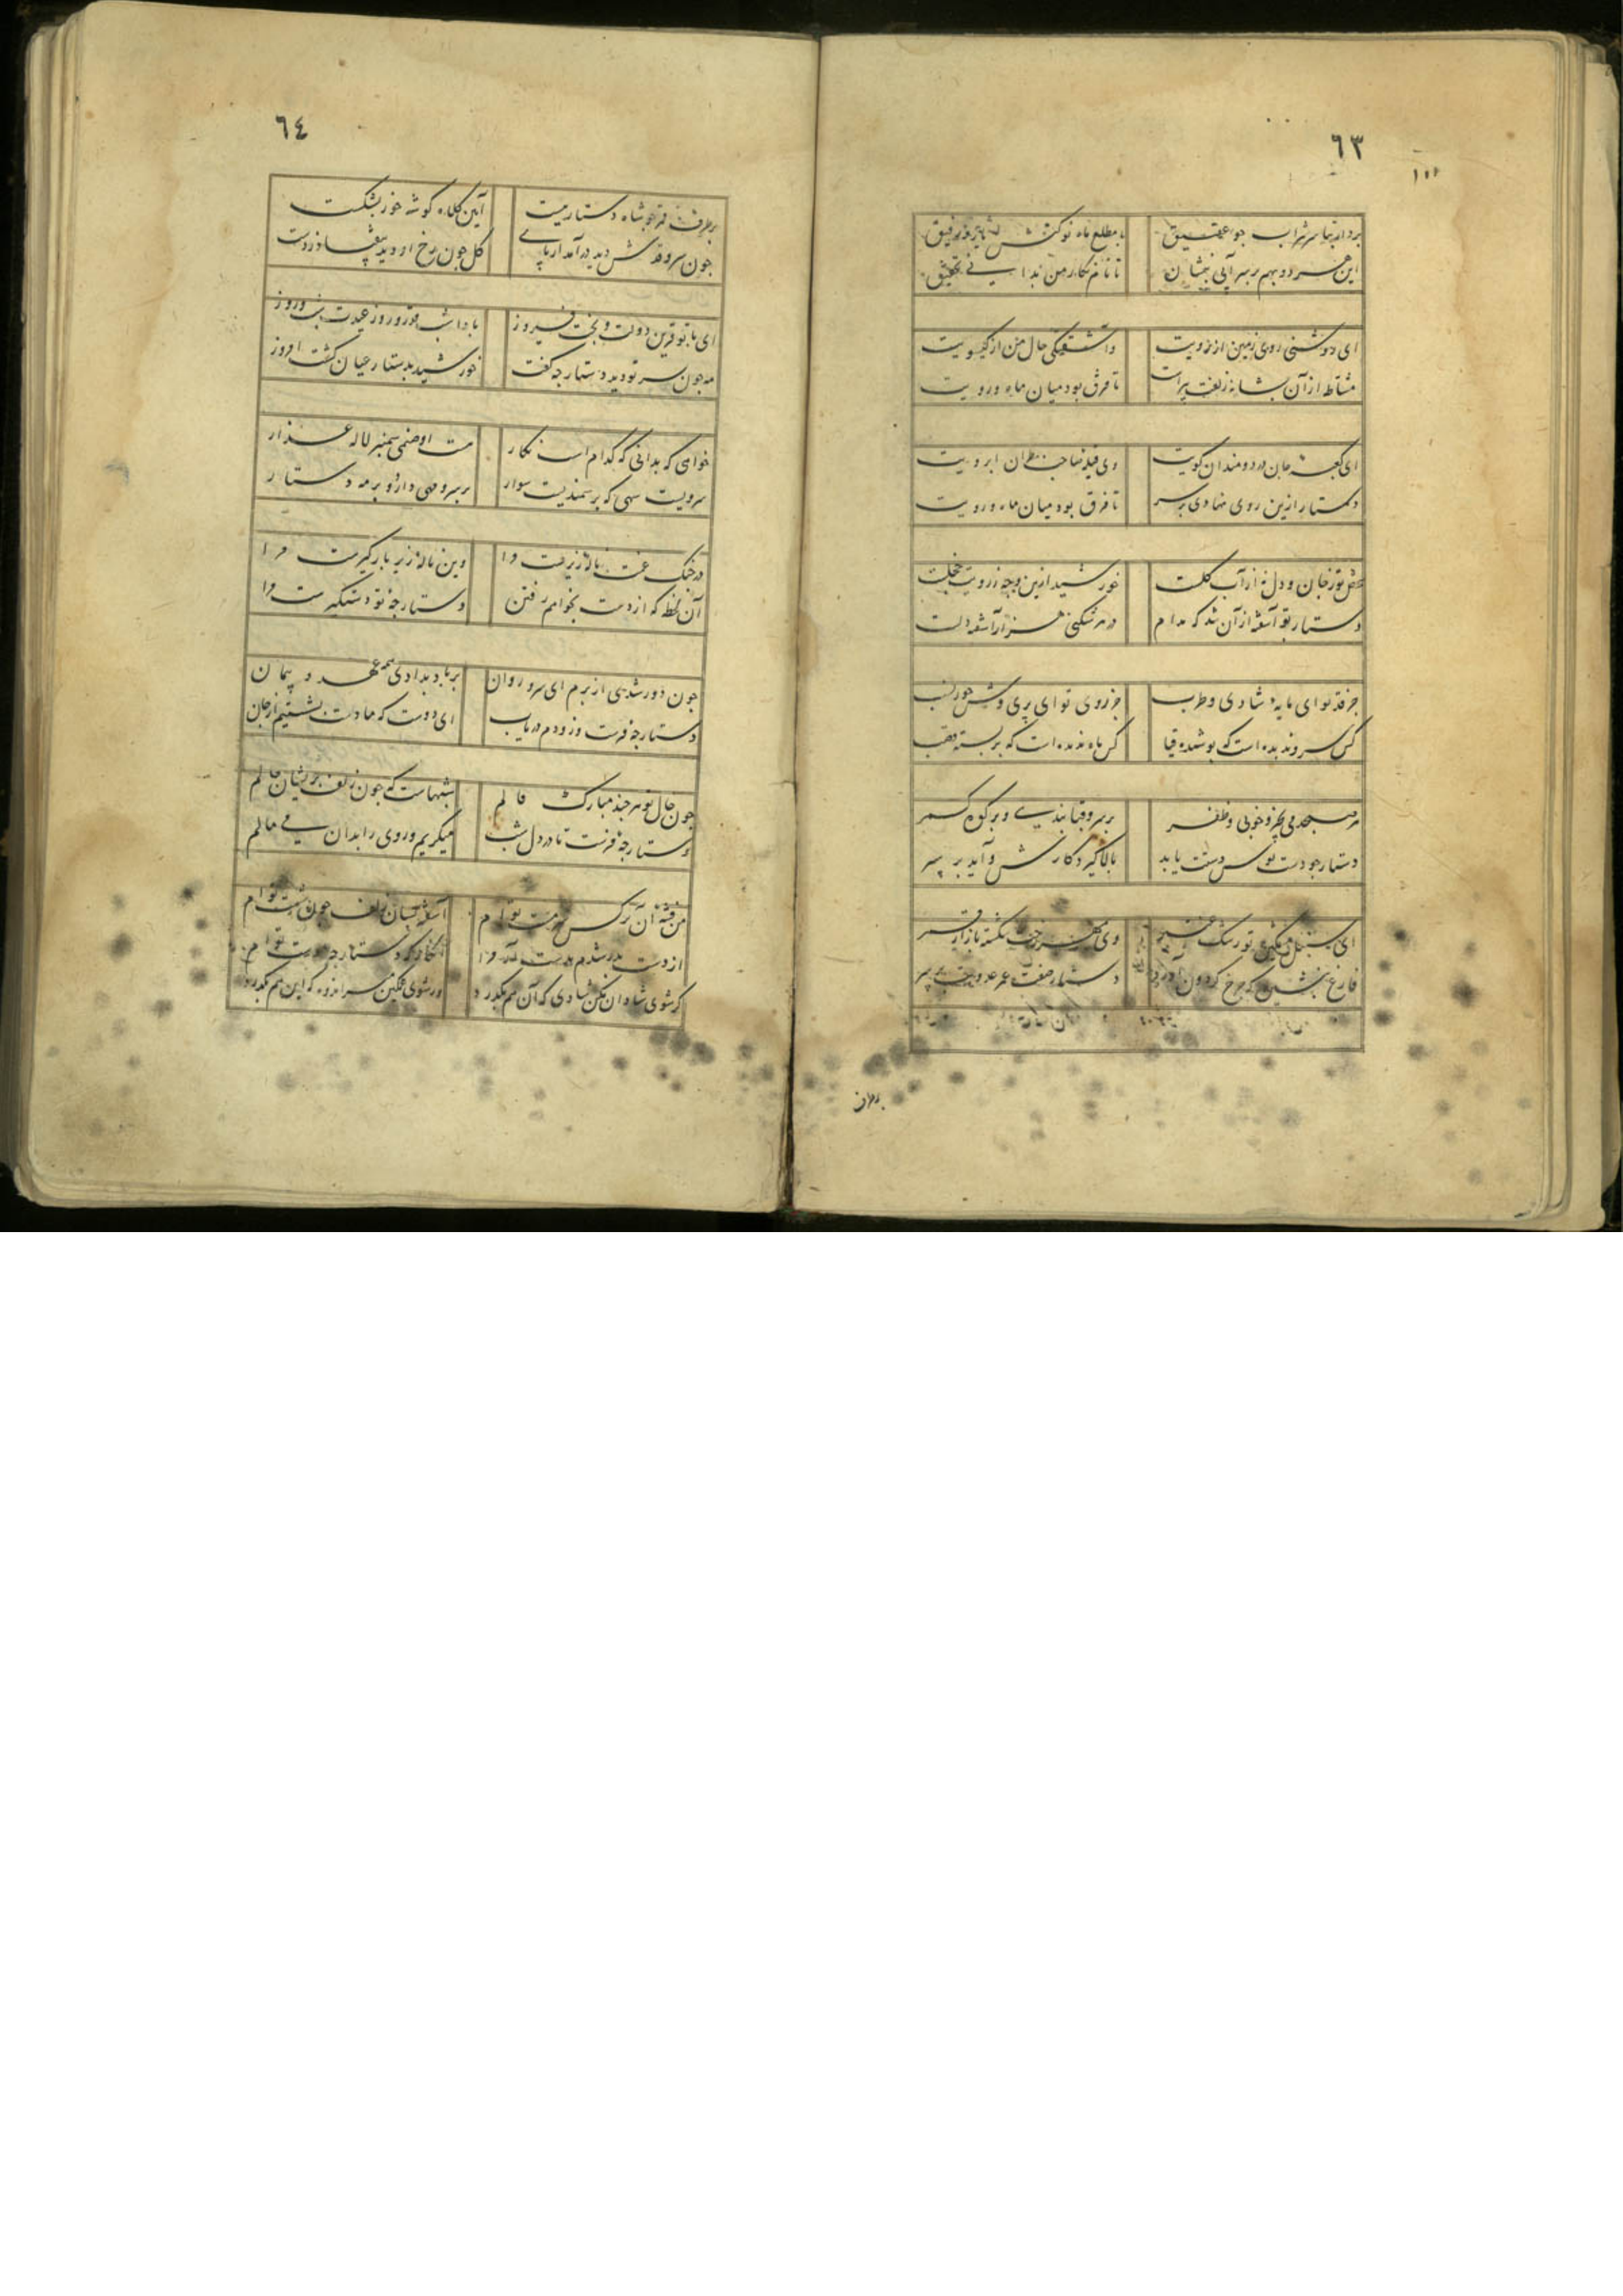 ٦٣
بردار تها سر شراب جو عقیق
با مطلع ماه نو کشش
این هر دو بهم بر سر آبی بنشان
تا نام نکار من بدانی تحقیق
ای روشنی روی زمین از رویت
واشفتکی حال من از کیسویت
مشاطه از آن شانه زلفت
تا فرق بود میان ماه و رویت
ای کعبه جان دردمندان کویت
وی قبله صاحب نظران ابرویت
دستار ازین روی نهادی بر سر
تا فرق بود میان ماه و رویت
تو ز جان و دل نه از آب کلست
خورشید ازین وجه ز رویت خجلست
دستار تو آشفته از آن شد که مدام
در هر شکنی هزار آشفته دلست
جز قد تو ای مایه شادی و طرب
جز روی تو ای پری وش حور نسب
کس سرو ندیده است که پوشیده قبا
کس ماه ندیده است که بربسته قصب
خوبی و ظفر
بر سرو قبا بندی و بر کوه کمر
دستار جو دست بوس دستت یابد
بالا کیرد کارش و آید بر سر
ای سنبل مشکین تو رشک عنبر
وی رخت شکسته بازار قمر
فارغ بنشین که چرخ کردون آورد
دستار صفت عمر عدویت بر سر
٦٤
بر طرف قمر جو شاه دستار ببست
آیین کلاه کوشه خور بشکست
جون سرو قدش دید در آمد از پای
کل جون رخ او دید بیفتاد ز دست
ای با تو قرین دولت و بخت فیروز
بادا شب قدر و روز عیدت شب و روز
مه جون سر تو دید و دستارجه کفت
خورشید بدستار عیان کشت امروز
خواهی که بدانی که کدام است نکار
مست او صنمی سمنبر لاله عذار
سرویست سهی که بر سمندیست سوار
بر سرو مهی دارد و بر مه دستار
در جنک غمت ناله زیرست مرا
وین ناله زیر بار کیرست مرا
آن لحظه که از دست بخواهم رفتن
دستارجه تو دستکیرست مرا
جون دور شدی از برم ای سرو روان
بر باد بدادی همه عهد و پیمان
دستارجه فرست و زودم دریاب
ای دوست که ما دست بشستیم از جان
جون حال تو هر جند مبارک فالم
شبهاست که جون زلف پریشان حالم
دستارجه فرست تا در دل شب
میکریم و روی را بدان می مالم
من فتنه آن نرکس مست تو ام
آشفته بسان زلف جون شست تو ام
از دست بدر شدم بدست آر مرا
انکار که دستارجه دست تو ام
کر شوی شادان مکن شادی که آن هم بکذرد
ور شوی غمکین مسر امزوه که این هم بکذرد